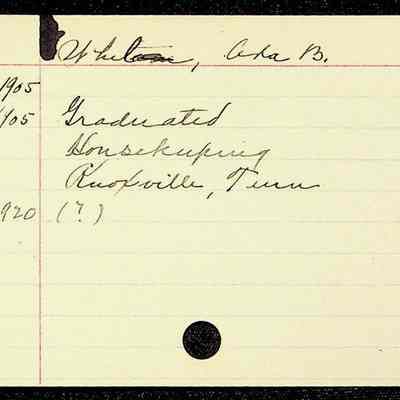 Whitson, Ada B.
1905
1905 Graduated
Housekeeping
Knoxville, Tenn
1920 (?)